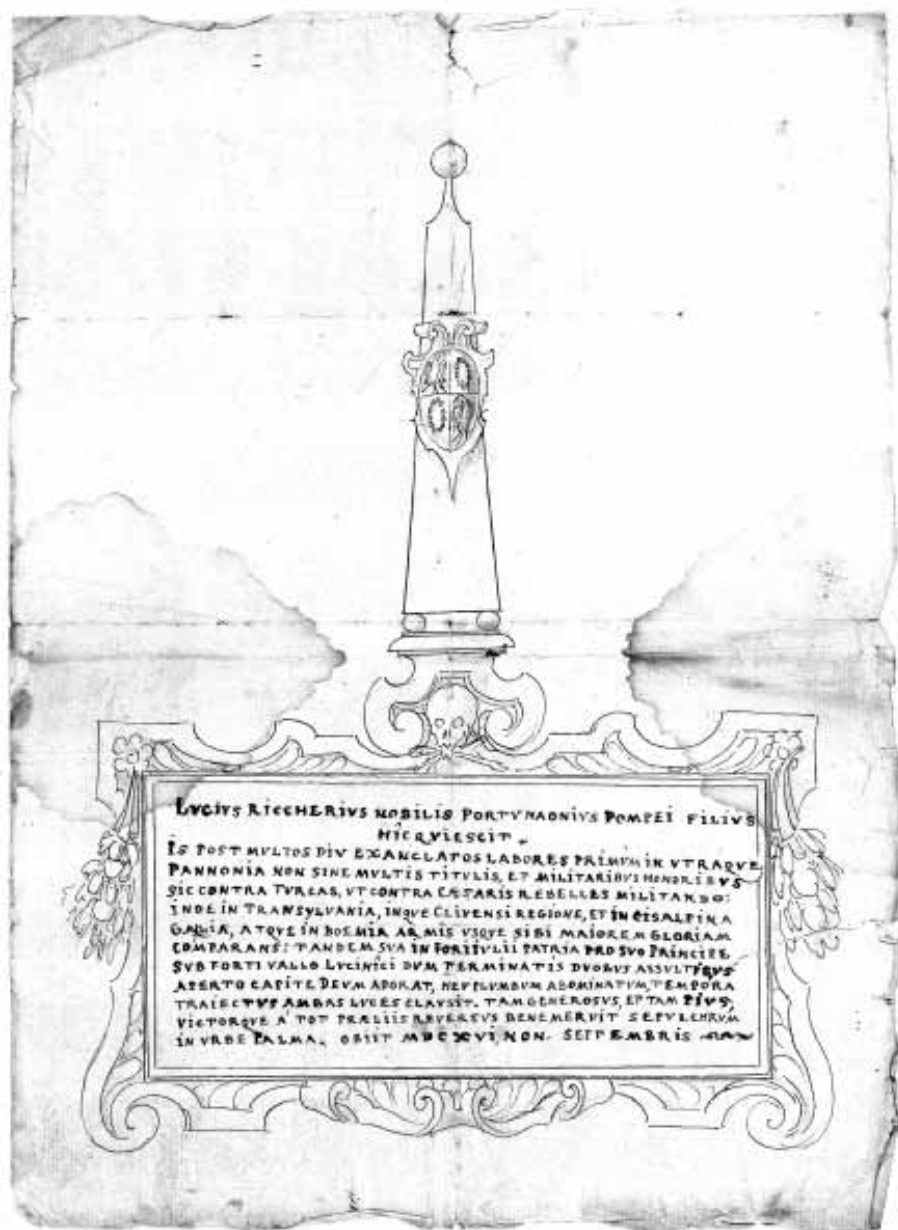 LVCIVS RICCHERIVS NOBILIS PORTVNAONIVS POMPEI FILIVS
HIC QVIESCIT.
IS POST MVLTOS DIV EXANCLATOS LABORES PRIMVM IN VTRAQVE
PANNONIA NON SINE MVLTIS TITVLIS, ET MILITARIBVS HONORIBVS
SIC CONTRA TVRCAS, VT CONTRA CÆSARIS REBELLES MILITANDO:
INDE IN TRANSYLVANIA, INQVE CLIVENSI REGIONE, ET IN CISALPINA
GALLIA, ATQVE IN BOEMIA ARMIS VSQVE SIBI MAIOREM GLORIAM
COMPARANS: TANDEM SVA IN FORIIVLII PATRIA PRO SVO PRINCIPE
SVB FORTI VALLO LVCINICI DVM TERMINATIS DVOBVS ASSVLTIBVS
APERTO CAPITE DEVM ADORAT, HEV PLVMBVM ABOMINATVM, TEMPORA
TRAIECTVS AMBAS LVCES CLAVSIT. TAM GENEROSVS, ET TAM PIVS,
VICTORQVE A' TOT PRÆLIIS REVERSVS BENEMERVIT SEPVLCHRVM
IN VRBE PALMA. OBIIT MDCXVI NON. SEPTEMBRIS